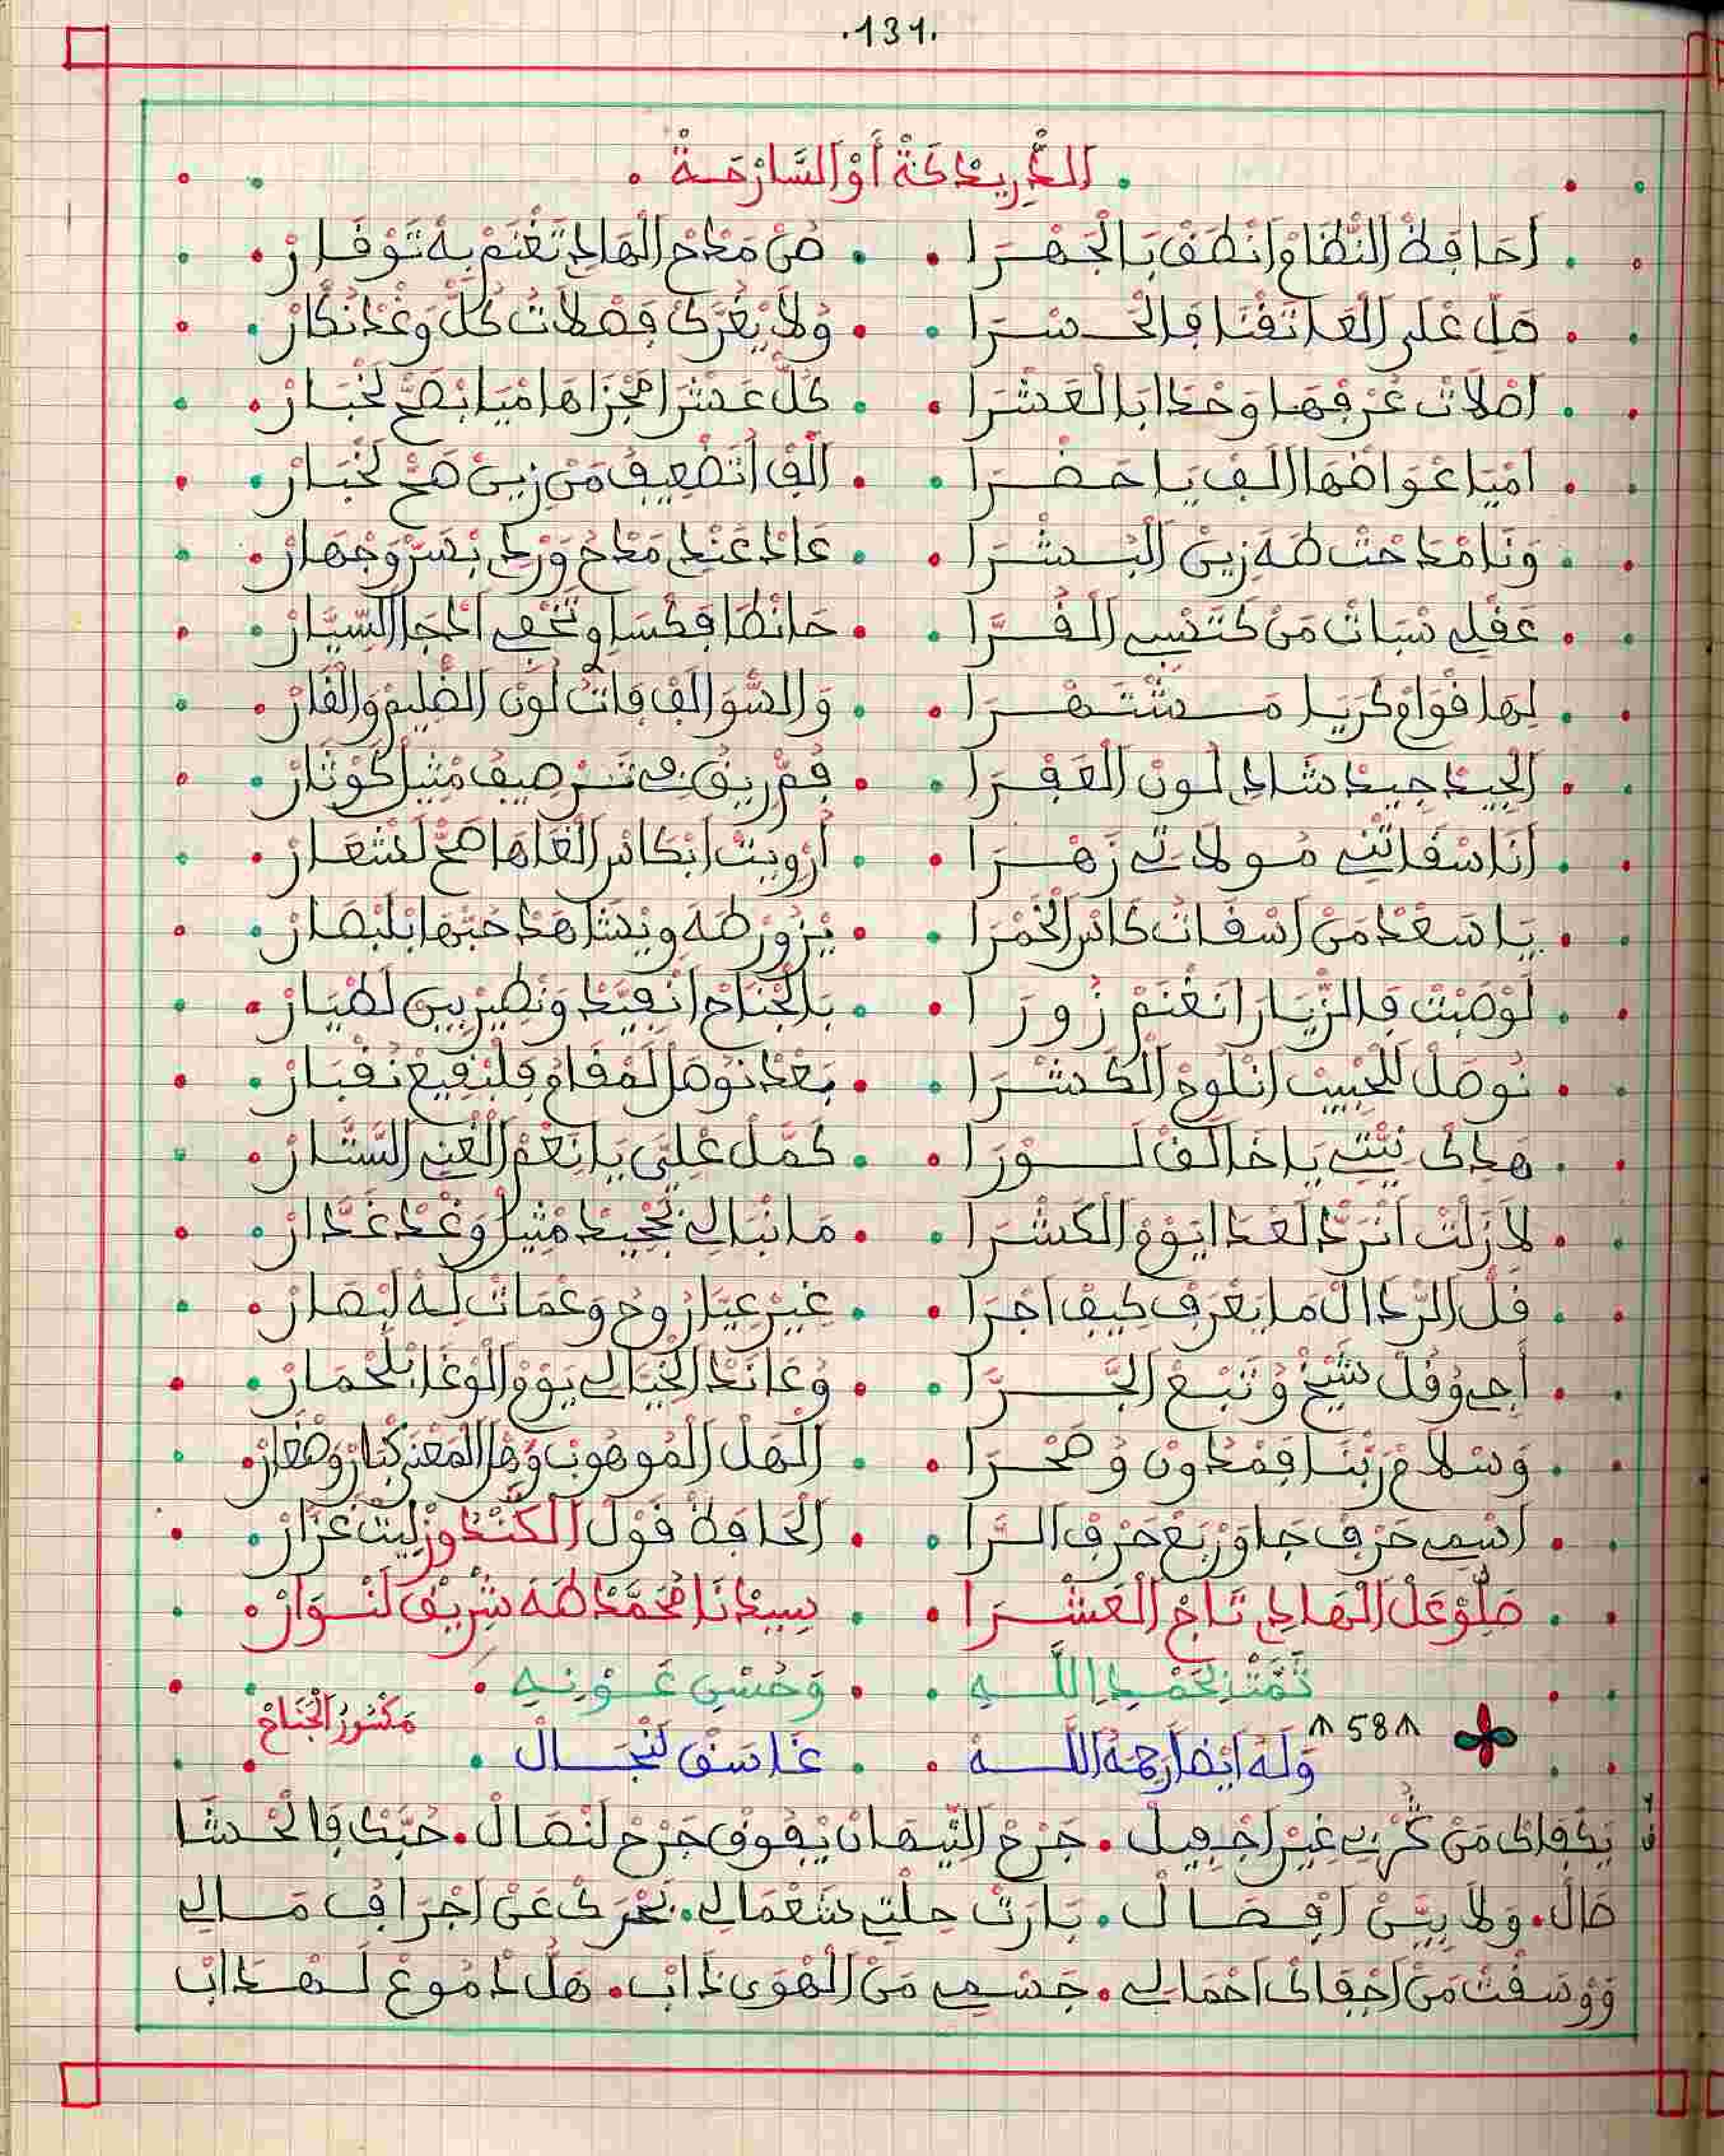 .131.
الدَّرِيدْكَةْ أَوْ السَّارْحَـةْ
أَحَافِظْ النّْظَامْ انْطَقْ بَالْجَهْــرَا • صُنْ مَدْحْ الْهَادِي تَغْنَمْ بِهْ تَوْقَـارْ
صَلِّ عْلَى الْعَاتَقْنَا فَالْحَــسْـرَا • وُلاَ يْغُرَّكْ فَضْلاَتْ كُلّْ وَغْدْ نَكَّارْ
اصْلاَتْ عَرْفْهَـا وَحْدَا بَالْعَشْرَا • كُلّْ عَشْرَا مْجْزَاهَا مْيَا بْصَحّْ لَخْبَـارْ
امْيَا عْوَاضْهَا الَفْ يَا حَضْـــرَا • الَفْ اتَضْعِيفْ مَنْ زِينْ صَحّْ لَخْبَـارْ
وَنَا مْدَحْتْ طَهَ زِينْ الْبُــشْــرَا • عَادْ عَنْدِي مَدْحُ وَرْدِي بْسَرّْ وَجْهَارْ
عَقْلِي سْبَاتْ مَنْ كَتَنْسِي الْقُــرَّا • حَانْطَا فَكْسَاوِي تَخْفِي الْحْجَا السِّيَّارْ
لِهَا قْوَامْ كَرَيَـا مَـــشْتَـهْــرَا • وَالسّْوَالَفْ فَاتُ لُونْ الضْلِيمْ وَالْقَارْ
الْجِيدْ جِيدْ شَادِي لُـونْ الْعَفْـرَا • فُمّْ رِيقُ فِي تَــرْصِيفْ مْثِيلْ كَوْثَارْ
أَنَا سْقَاتْنِي مُـولاَتِي زَهْــرَا • أرْوِيتْ ابْكَاسْ الْقَاهَا صَحّْ لَشْعَـارْ
يَـا سَعْدْ مَنْ اسْقَـاتْ كَاسْ الْخَمْرَا • يْزُورْ طَهَ وِيْشَاهَدْ حُبّْهَا بْلَبْصَـارْ
لَوْصَبْتْ فَالزّْيَـارَا نَغْنَمْ زُورَا • بَالْجْنَاحْ انْفِيَّدْ وَنْطِيرْ بِينْ لَطْيَـارْ
نُوصَلْ لْلَحْبِيبْ انْلُوحْ الْكَشْــرَا • بَعْدْ نُوصَلْ لَمْقَامُ فَلْبْقِيعْ نَقْبَـارْ
هَدِكْ نِيّْتِي يَا خَالَقْ لَـــوْرَا • كَمَّلْ عْلِيَّ يَا نَعْمْ الْغْنِي السَّتَّـارْ
لاَزَلْتْ انْرَدّْ لَعْدَا يَوْمْ الْكَشْـرَا • مَانْبَـالِي بْجْحِيدْ مْثِيلْ وَغْدْ غَدَّارْ
قُلّْ الرّْدَالْ مَا يَعْرَفْ كِيفْ اجْرَا • غِيرْ عِيَّا رُوحُ وَعْمَاتْ لَـهْ لَبْصَـارْ
أَجِي وُقُلّْ شَيْخْ وُتْبَـعْ الْجَــرَّا • وُعَانَدْ الْخْيَالِي يَوْمْ الْوْغَا بْلَحْمَـارْ
وَسْلاَمْ رَبّْنَـا فَمْدُونْ وُصَحْـرَا • الْهَلْ الْمُوهُوبْ وَهْلْ الْمَعْنَى كْبَارْ وَصْغَارْ
اسْمِي حَرْفْ جَا وَرْبَعْ حَرْفْ الــرَّا • الْحَافِظْ قَوْلْ الْكَنْدُوزْ لِيتْ غَزَّارْ
صَلِّوْ عْلْ الْهَادِي تَـاجْ الْعَشْــرَا • سِيدْنَا مُحَمَّدْ طَهَ شْرِيفْ لَنْـوَارْ
تَمَّتْ بْحَمْـدِ اللَّــهِ • وَحُسْنِ عَــوْنِـهِ
مَكْسُورْ الْجْنَاحْ
58
وَلَهُ أَيْضاً رَحِمَهُ اللَّــهُ • غَاسَقْ لَنْجَــالْ
يَكْفَاكْ مَنْ هُجْرِي غِيرْ اجْفِيلْ • جَرْحْ التِّيهَانْ يْفُوقْ جَرْحْ لَنْصَالْ • حُبَّكْ فَالْحْشَا
طَالْ • وَلاَ بِيَّنْ افْصَـالْ • بَارَتْ حِلْتِي شَعْمَالِي • بَحْرَكْ عَنْ اجْرَافُ مَـالِي
وَوْسَقْتْ مَنْ اجْفَاكْ احْمَالِي • جَسْمِي مَنْ الْهْوَى دَابْ • هَلْ دْمُوعْ لَـهْـدَابْ